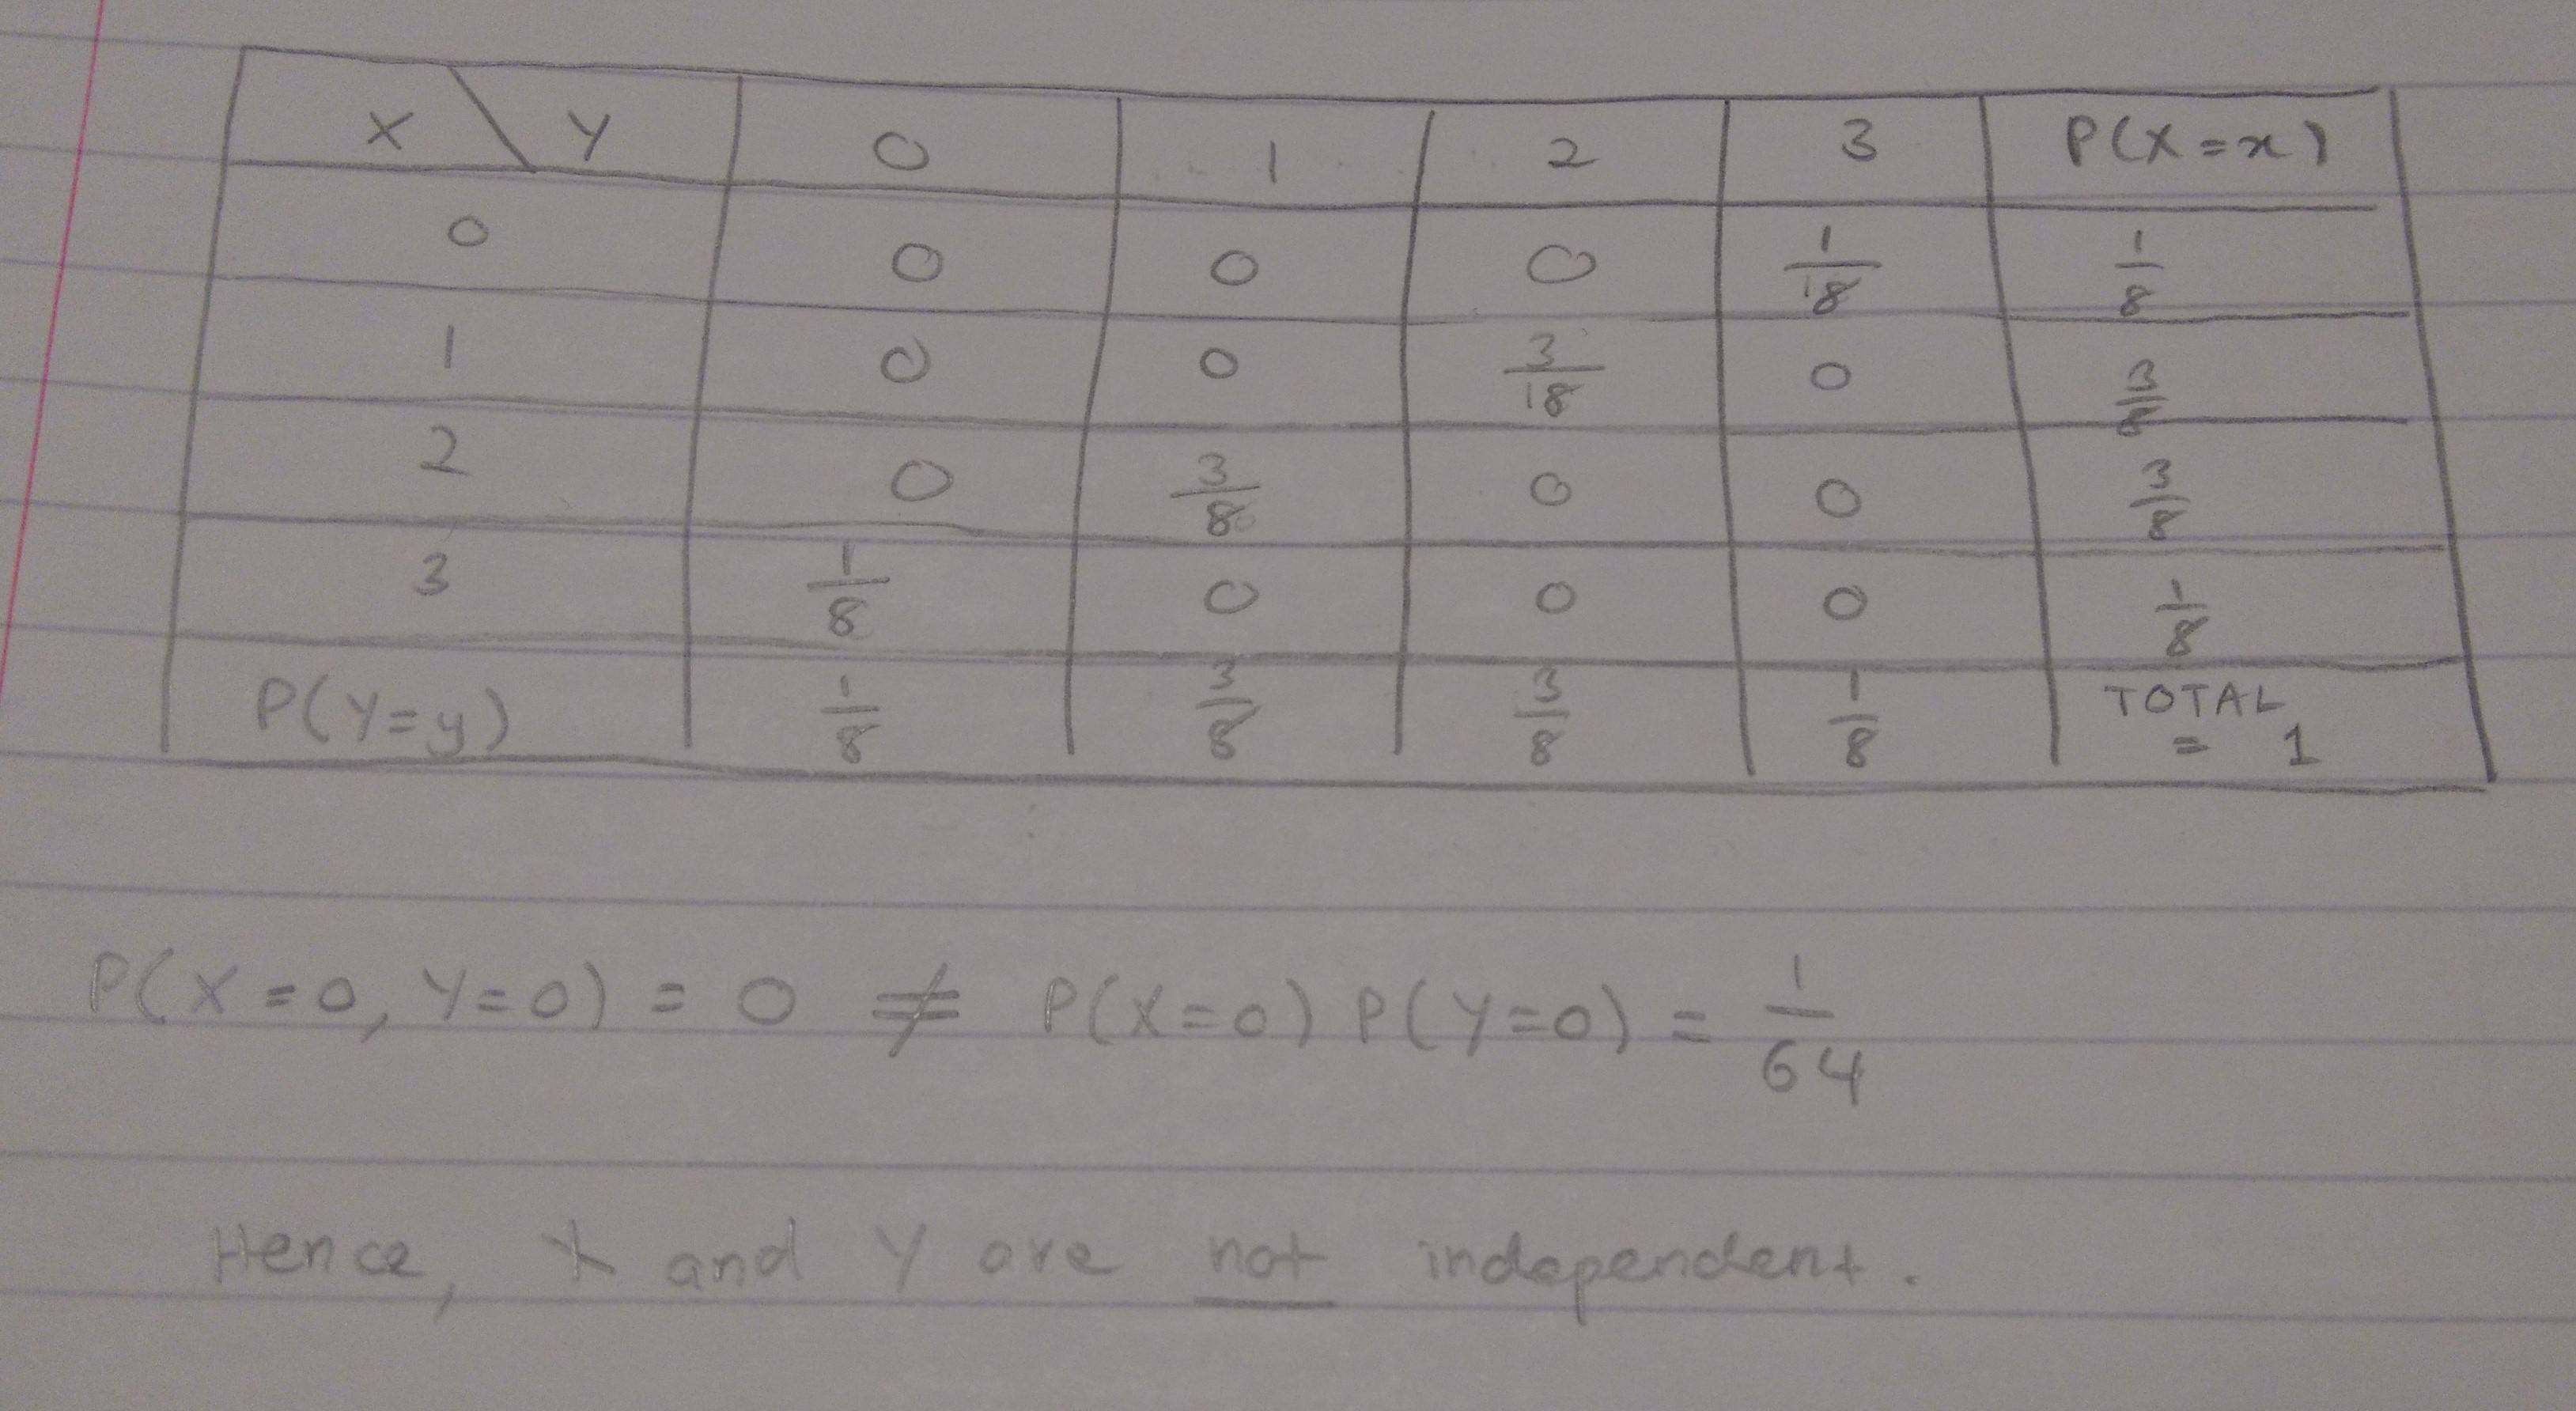 X \ Y 0 1 2 3 P(X=x)
0 0 0 0 1/18 1/8
1 0 0 3/18 0 3/8
2 0 3/8 0 0 3/8
3 1/8 0 0 0 1/8
P(Y=y) 1/8 3/8 3/8 1/8 TOTAL = 1
P(X=0, Y=0) = 0 ≠ P(X=0) P(Y=0) = 1/64
Hence, X and Y are not independent.